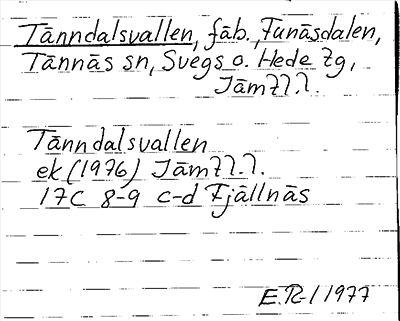 Tänndalsvallen, fäb., Funäsdalen,
Tännäs sn, Svegs o. Hede tg,
Jämtl. l.
Tänndalsvallen
ek (1976) Jämtl. l.
17C 8-9 c-d Fjällnäs
E.R-l 1977